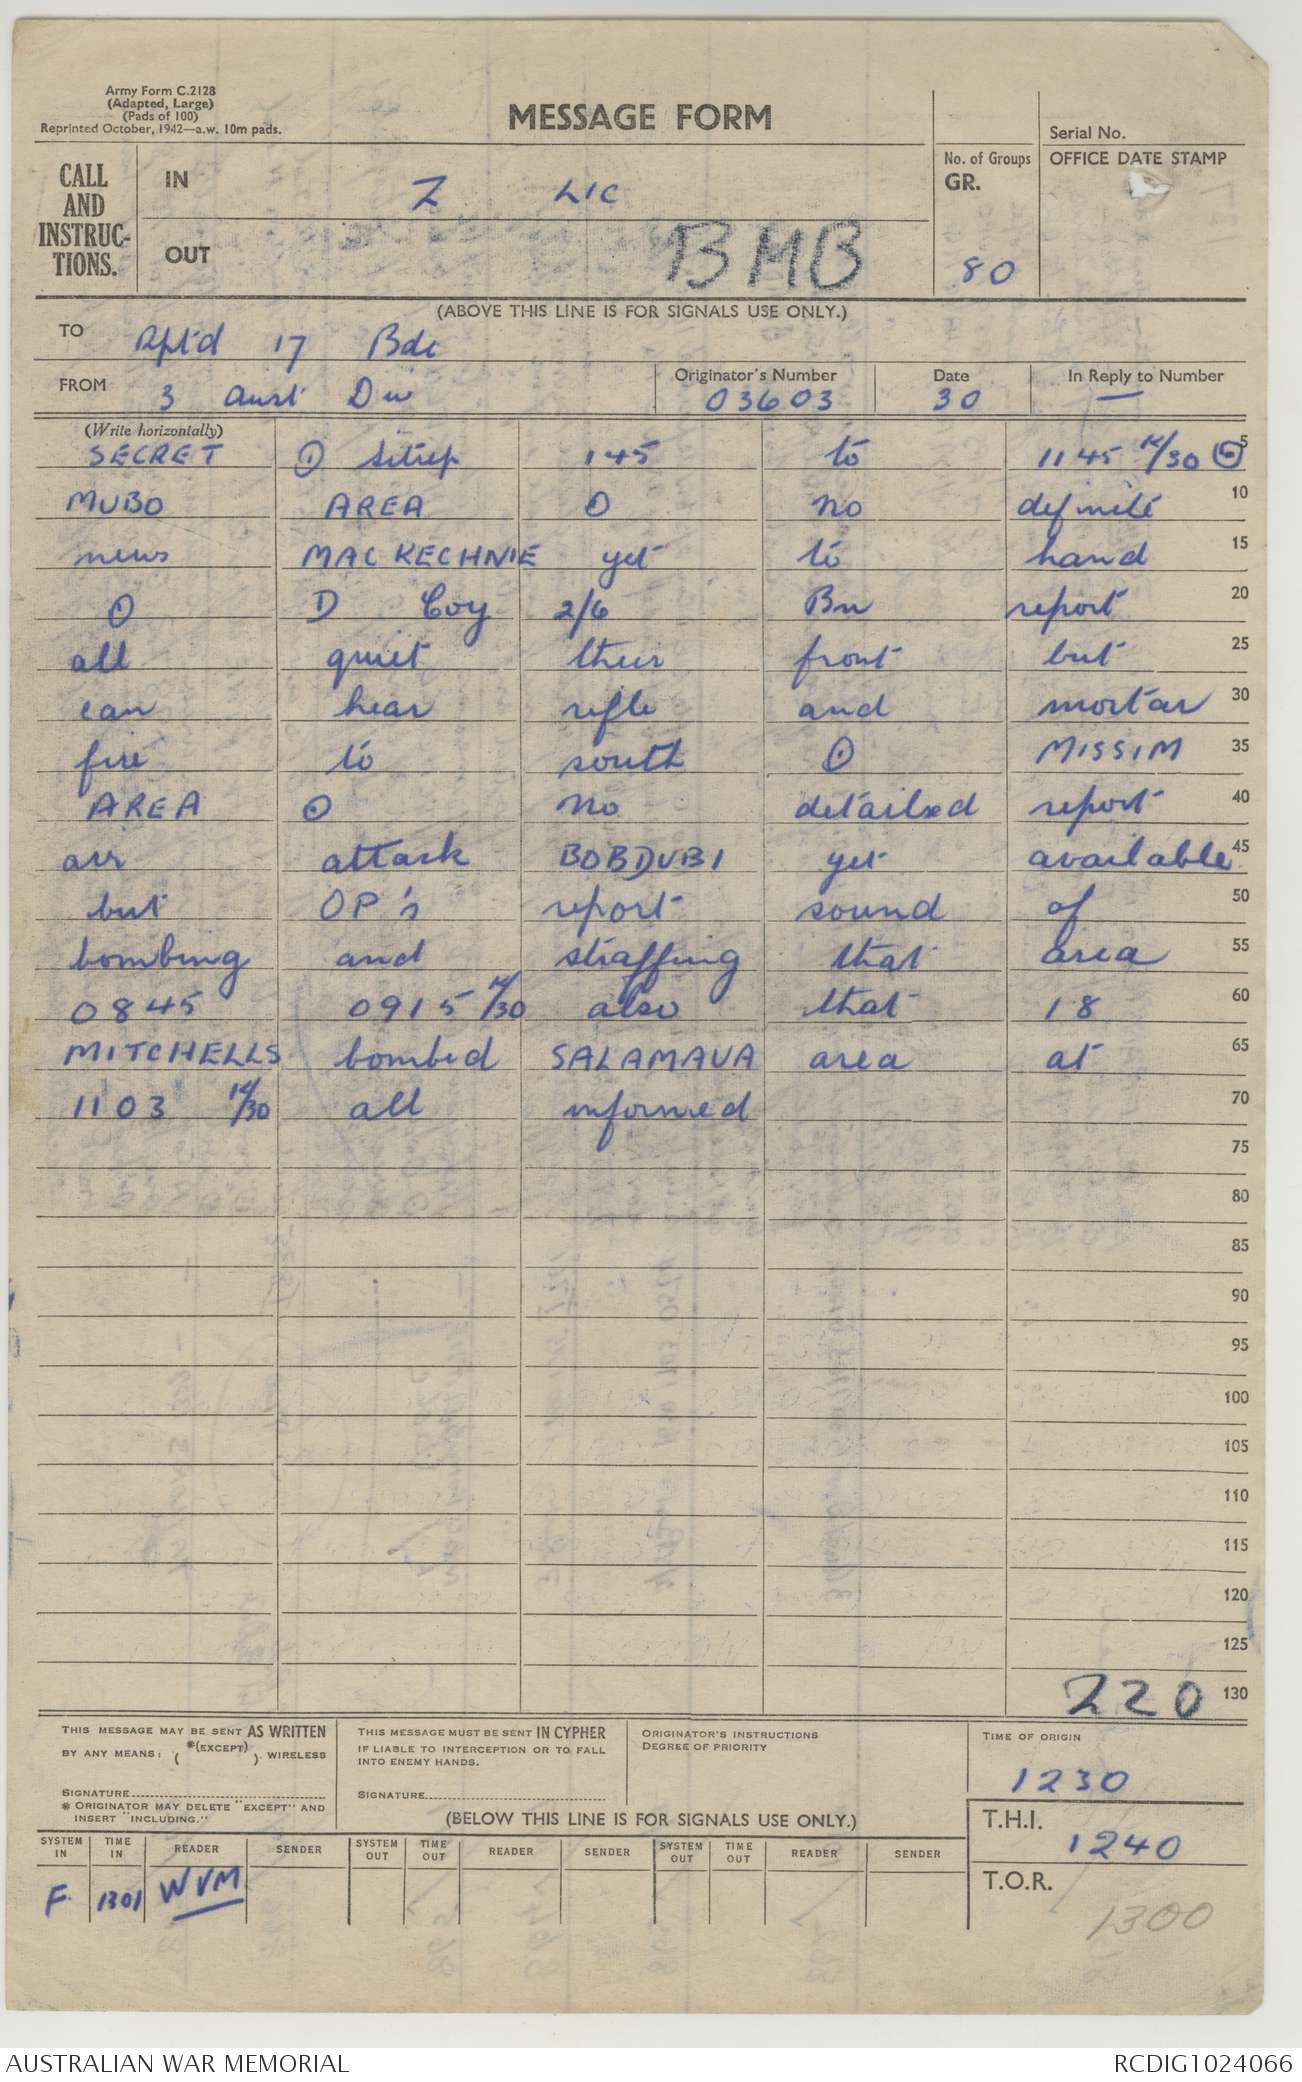 Army Form C.2128
(Adapted, Large)
(Pads of 100)
Reprinted October, 1942—a.w. 10m pads.
MESSAGE FORM
Serial No.
CALL
AND
INSTRUC-
TIONS.
IN Z LIC
OUT BMB
No. of Groups
GR.
80
OFFICE DATE STAMP
(ABOVE THIS LINE IS FOR SIGNALS USE ONLY.)
TO Rpt'd 17 Bde
FROM 3 Aust Div
Originator's Number 03603
Date 30
In Reply to Number —
(Write horizontally)
SECRET ⊙ Sitrep 145 to 1145 K/30 ⊙ 5
MUBO AREA ⊙ no definite 10
news MACKECHNIE yet to hand 15
⊙ D Coy 2/6 Bn report 20
all quiet their front but 25
can hear rifle and mortar 30
fire to south ⊙ MISSIM 35
AREA ⊙ no detailed report 40
air attack BOBDUBI yet available 45
but OP's report sound of 50
bombing and straffing that area 55
0845 0915 K/30 also that 18 60
MITCHELLS bombed SALAMAUA area at 65
1103 K/30 all informed 70
75
80
85
90
95
100
105
110
115
120
125
220 130
THIS MESSAGE MAY BE SENT AS WRITTEN
BY ANY MEANS: ( *(EXCEPT) ). WIRELESS
SIGNATURE
* ORIGINATOR MAY DELETE "EXCEPT" AND
INSERT "INCLUDING."
THIS MESSAGE MUST BE SENT IN CYPHER
IF LIABLE TO INTERCEPTION OR TO FALL
INTO ENEMY HANDS.
SIGNATURE
ORIGINATOR'S INSTRUCTIONS
DEGREE OF PRIORITY
TIME OF ORIGIN
1230
(BELOW THIS LINE IS FOR SIGNALS USE ONLY.)
T.H.I.
1240
T.O.R.
1300
SYSTEM IN TIME IN READER SENDER SYSTEM OUT TIME OUT READER SENDER SYSTEM OUT TIME OUT READER SENDER
F. 1301 WVM
AUSTRALIAN WAR MEMORIAL RCDIG1024066